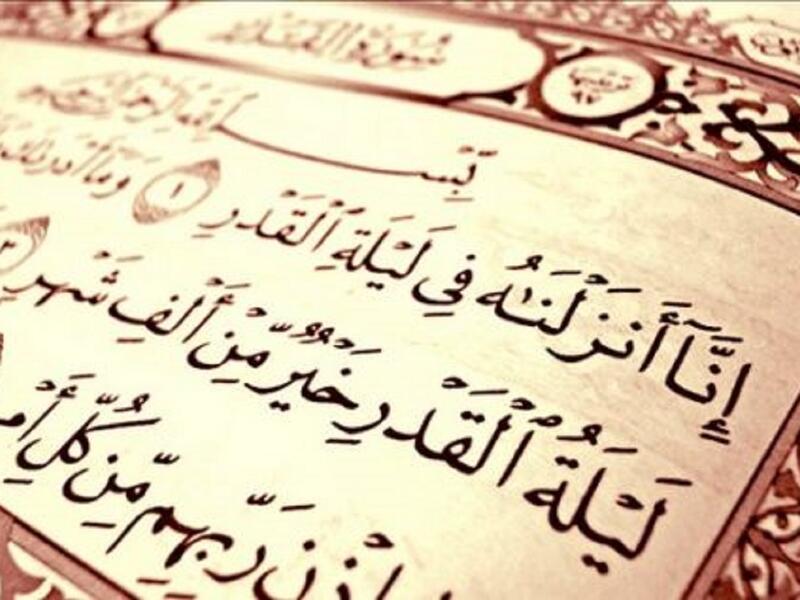 سُورَةُ القَدْرِ
بِسْمِ اللَّهِ الرَّحْمَٰنِ الرَّحِيمِ
إِنَّآ أَنزَلْنَٰهُ فِي لَيْلَةِ ٱلْقَدْرِ ١ وَمَآ أَدْرَىٰكَ
لَيْلَةُ ٱلْقَدْرِ خَيْرٌ مِّنْ أَلْفِ شَهْرٍ ٣
بِإِذْنِ رَبِّهِم مِّن كُلِّ أَمْ